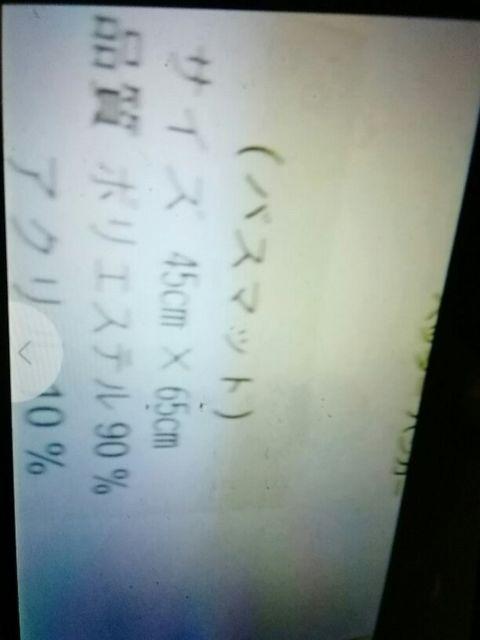 (バスマット)
サイズ 45cm × 65cm
品質 ポリエステル 90%
アクリ 10%